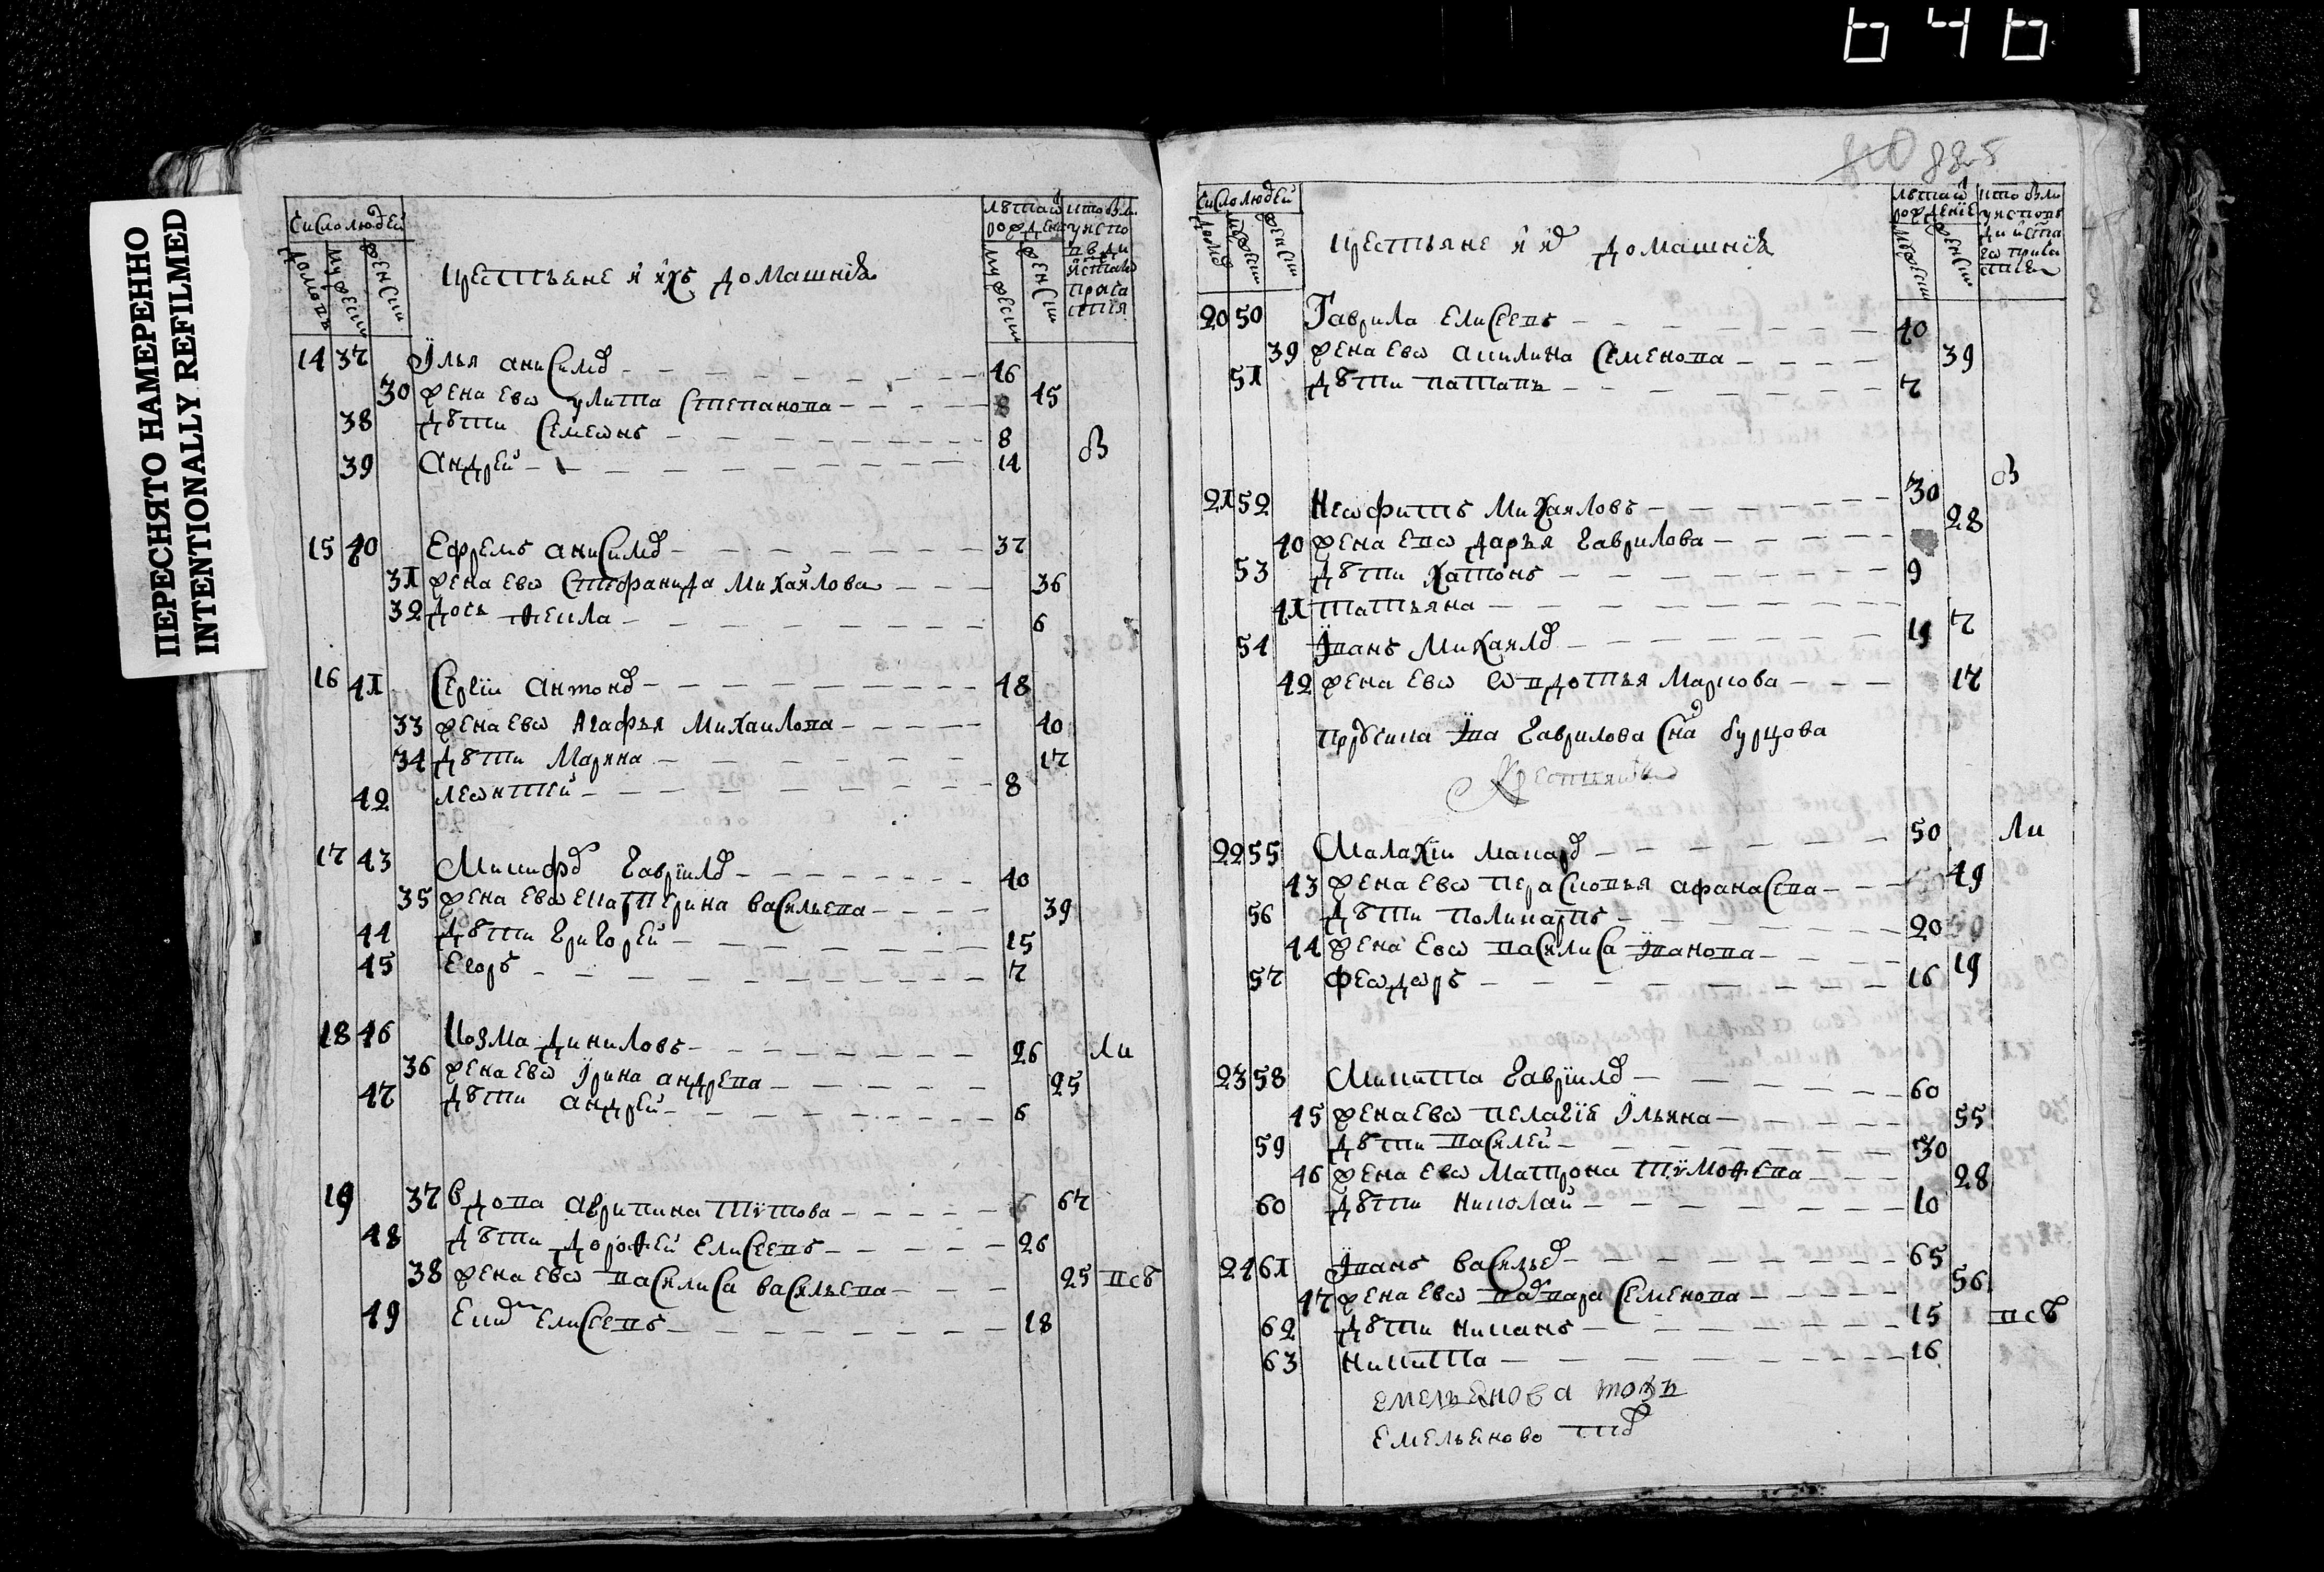 646
ПЕРЕСНЯТО НАМЕРЕННО
INTENTIONALLY REFILMED
число людей
домовъ
мужеск
женски
крестьяне й йхъ домашнїя
лѣта ѿ рождени
мужеск
женски
14 37 Їлья анисимо 46
30 жена евѡ улита степанова 45
38 дѣти семеѡнъ 8
39 андрей 14
в
15 40 Ефремъ анисимо 37
31 жена евѡ стефанида михайлова 36
32 дочь ѳекла 6
16 41 Сергїи антоно 48
33 жена евѡ агафья михаилова 40
34 дѣти маряна 17
42 леѡнтей 8
17 43 Никифо гаврїило 40
35 жена евѡ екатерина васильева 39
44 дѣти григорей 15
45 егоръ 7
18 46 Козма даниловъ 26
ли
36 жена евѡ їрина андрева 25
47 дѣти андрей 6
19 37 вдова агрипина титова 67
48 дѣти дороѳей елисеевъ 26
38 жена евѡ василиса васильева 25
всѣ
49 елисеевъ 18
885
число людей
мужески
женски
крестьяне й й домашнїя
лѣта ѿ рожденїе
20 50 Гаврила елисеевъ 40
39 жена евѡ акилина семенова 39
51 дѣти патапъ 7
в
21 52 Неѡфитъ михаиловъ 30
40 жена евѡ дарья гаврилова 28
53 дѣти хатонъ 9
41 татьяна 7
54 Їванъ михаило 19
42 жена евѡ ѡвдотья маркова 17
їва гаврилова сна бурцова
крестьяне
22 55 Малахїи макаро 50
ли
43 жена евѡ парасковья афанасева 49
56 дѣти поликарпъ 20
44 жена евѡ василиса їванова 19
57 феѡдѡръ 16
23 58 Никита гаврїило 60
45 жена евѡ пелагїя їльина 55
59 дѣти василей 30
46 жена евѡ матрона тимоѳева 28
60 дѣти николай 10
24 61 Їванъ василье 65
47 жена евѡ варвара семенова 56
62 дѣти никанъ 15
всѣ
63 никита 16
емельянова тожъ
емельяново то